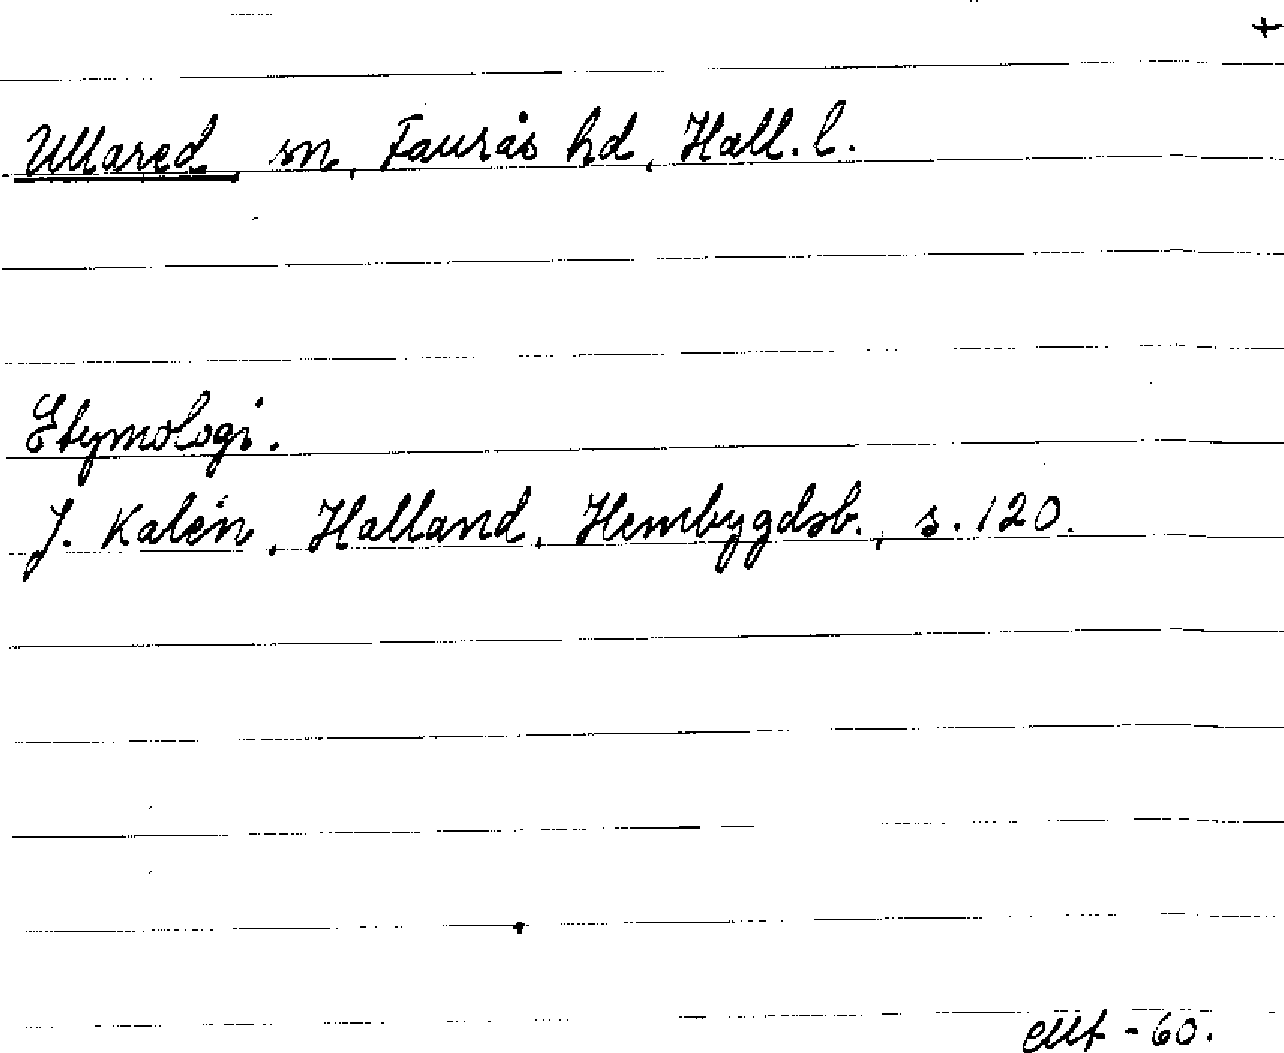 +
Ullared sn, Faurås hd, Hall. l.
Etymologi.
J. Kalén, Halland, Hembygdsb., s. 120.
-60.